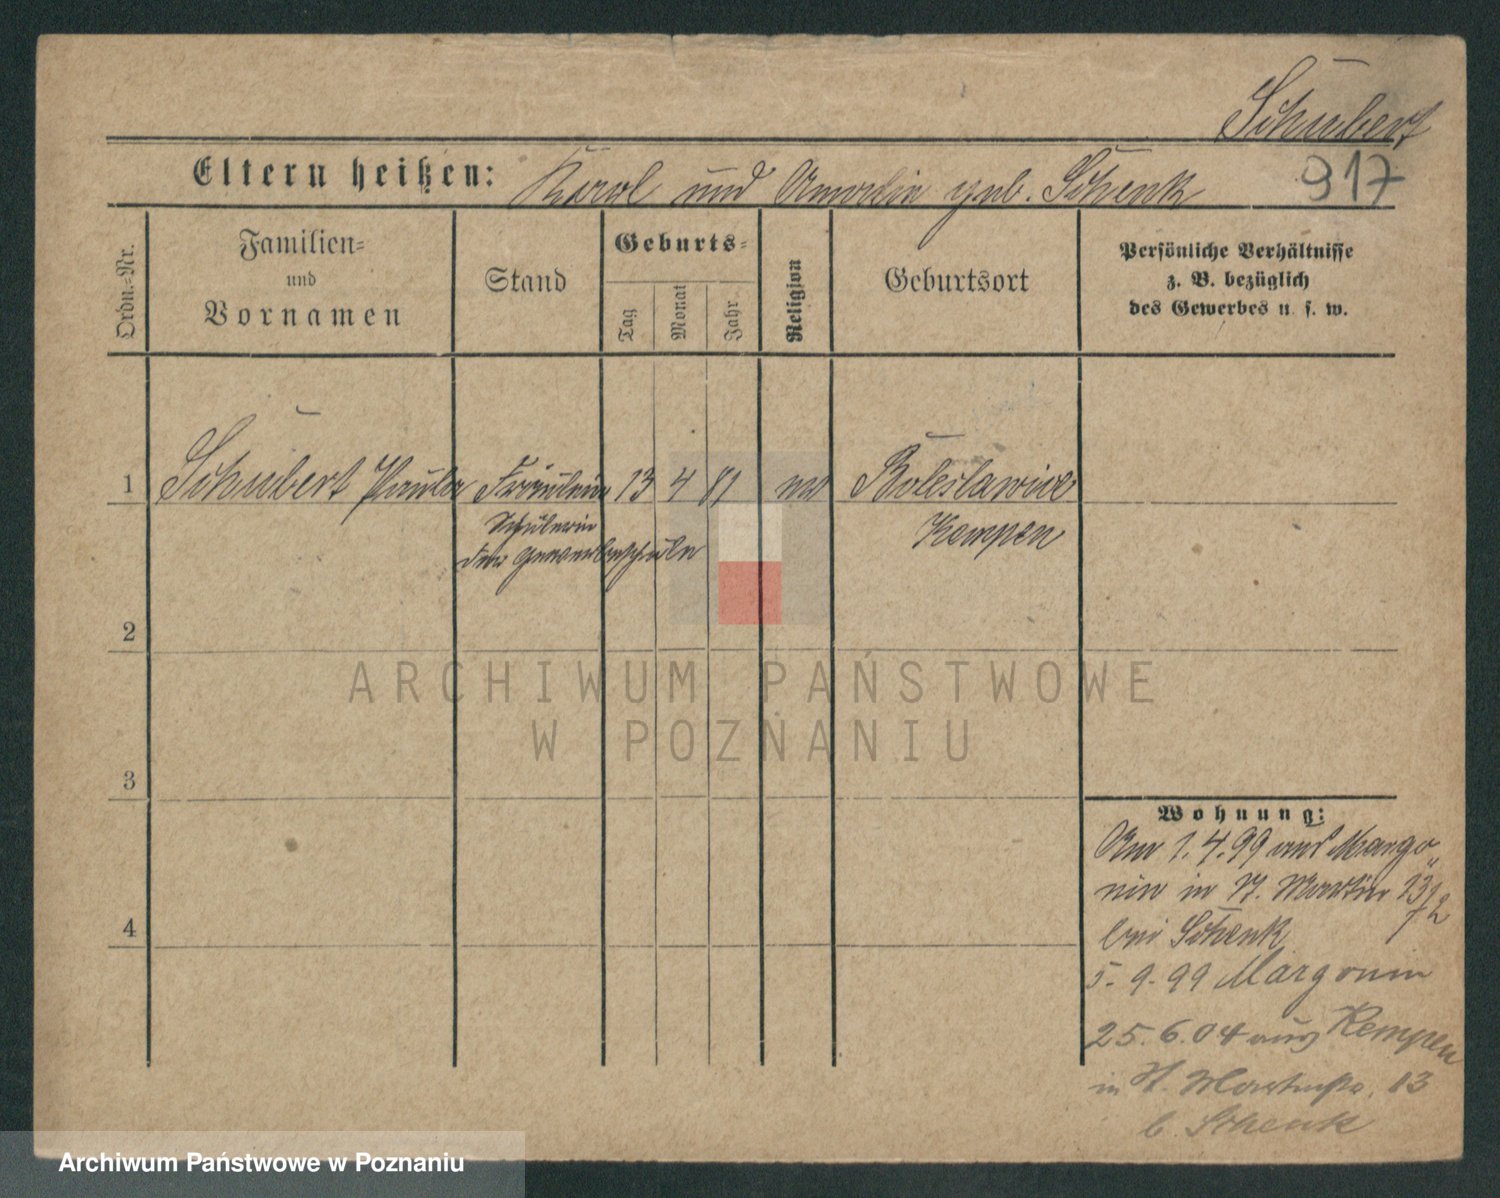 Schubert
917
Eltern heißen: Karol und Amalia geb. Schenk
Ordn.-Nr.
Familien-
und
Vornamen
Stand
Geburts-
Tag
Monat
Jahr
Religion
Geburtsort
Persönliche Verhältnisse
z. B. bezüglich
des Gewerbes u. s. w.
1 Schubert Paula Fräulein 13 4 81 Boleslawice
Schülerin Kempen
der Gewerbeschule
2
ARCHIWUM PAŃSTWOWE
W POZNANIU
3
Wohnung:
Am 1.4.99 aus Margo
nin in St. Martin 13
bei Schenk
5.9.99 Margonin
4
25.6.04 aus Kempen
in St. Martinstr. 13
b. Schenk
Archiwum Państwowe w Poznaniu